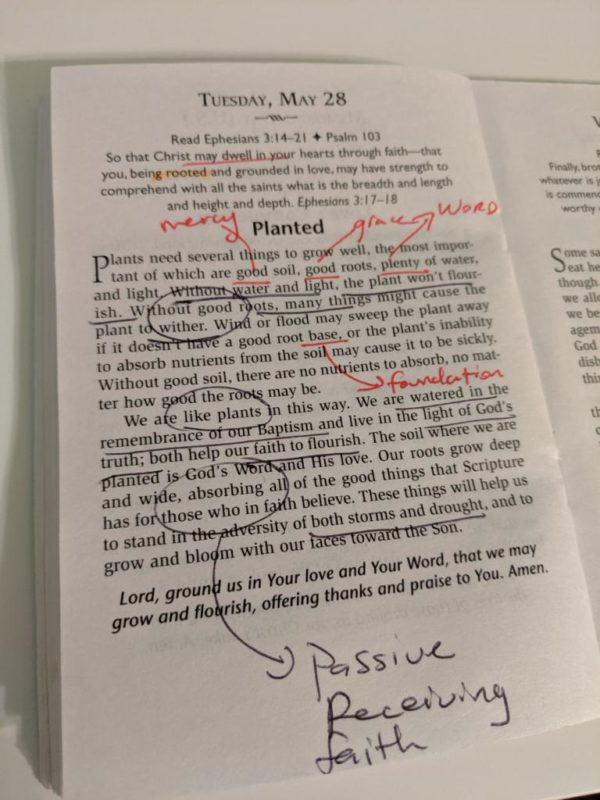 TUESDAY, MAY 28
Read Ephesians 3:14–21 ✦ Psalm 103
So that Christ may dwell in your hearts through faith—that
you, being rooted and grounded in love, may have strength to
comprehend with all the saints what is the breadth and length
and height and depth. Ephesians 3:17–18
mercy grace WORD
Planted
Plants need several things to grow well, the most impor-
tant of which are good soil, good roots, plenty of water,
and light. Without water and light, the plant won't flour-
ish. Without good roots, many things might cause the
plant to wither. Wind or flood may sweep the plant away
if it doesn't have a good root base, or the plant's inability
to absorb nutrients from the soil may cause it to be sickly.
Without good soil, there are no nutrients to absorb, no mat-
ter how good the roots may be.
foundation
We are like plants in this way. We are watered in the
remembrance of our Baptism and live in the light of God's
truth; both help our faith to flourish. The soil where we are
planted is God's Word and His love. Our roots grow deep
and wide, absorbing all of the good things that Scripture
has for those who in faith believe. These things will help us
to stand in the adversity of both storms and drought, and to
grow and bloom with our faces toward the Son.
Lord, ground us in Your love and Your Word, that we may
grow and flourish, offering thanks and praise to You. Amen.
Passive
Receiving
faith
Finally, bro
whatever is j
is commen
worthy
Some sa
eat he
though
we allo
we be
agem
God
dish
thi